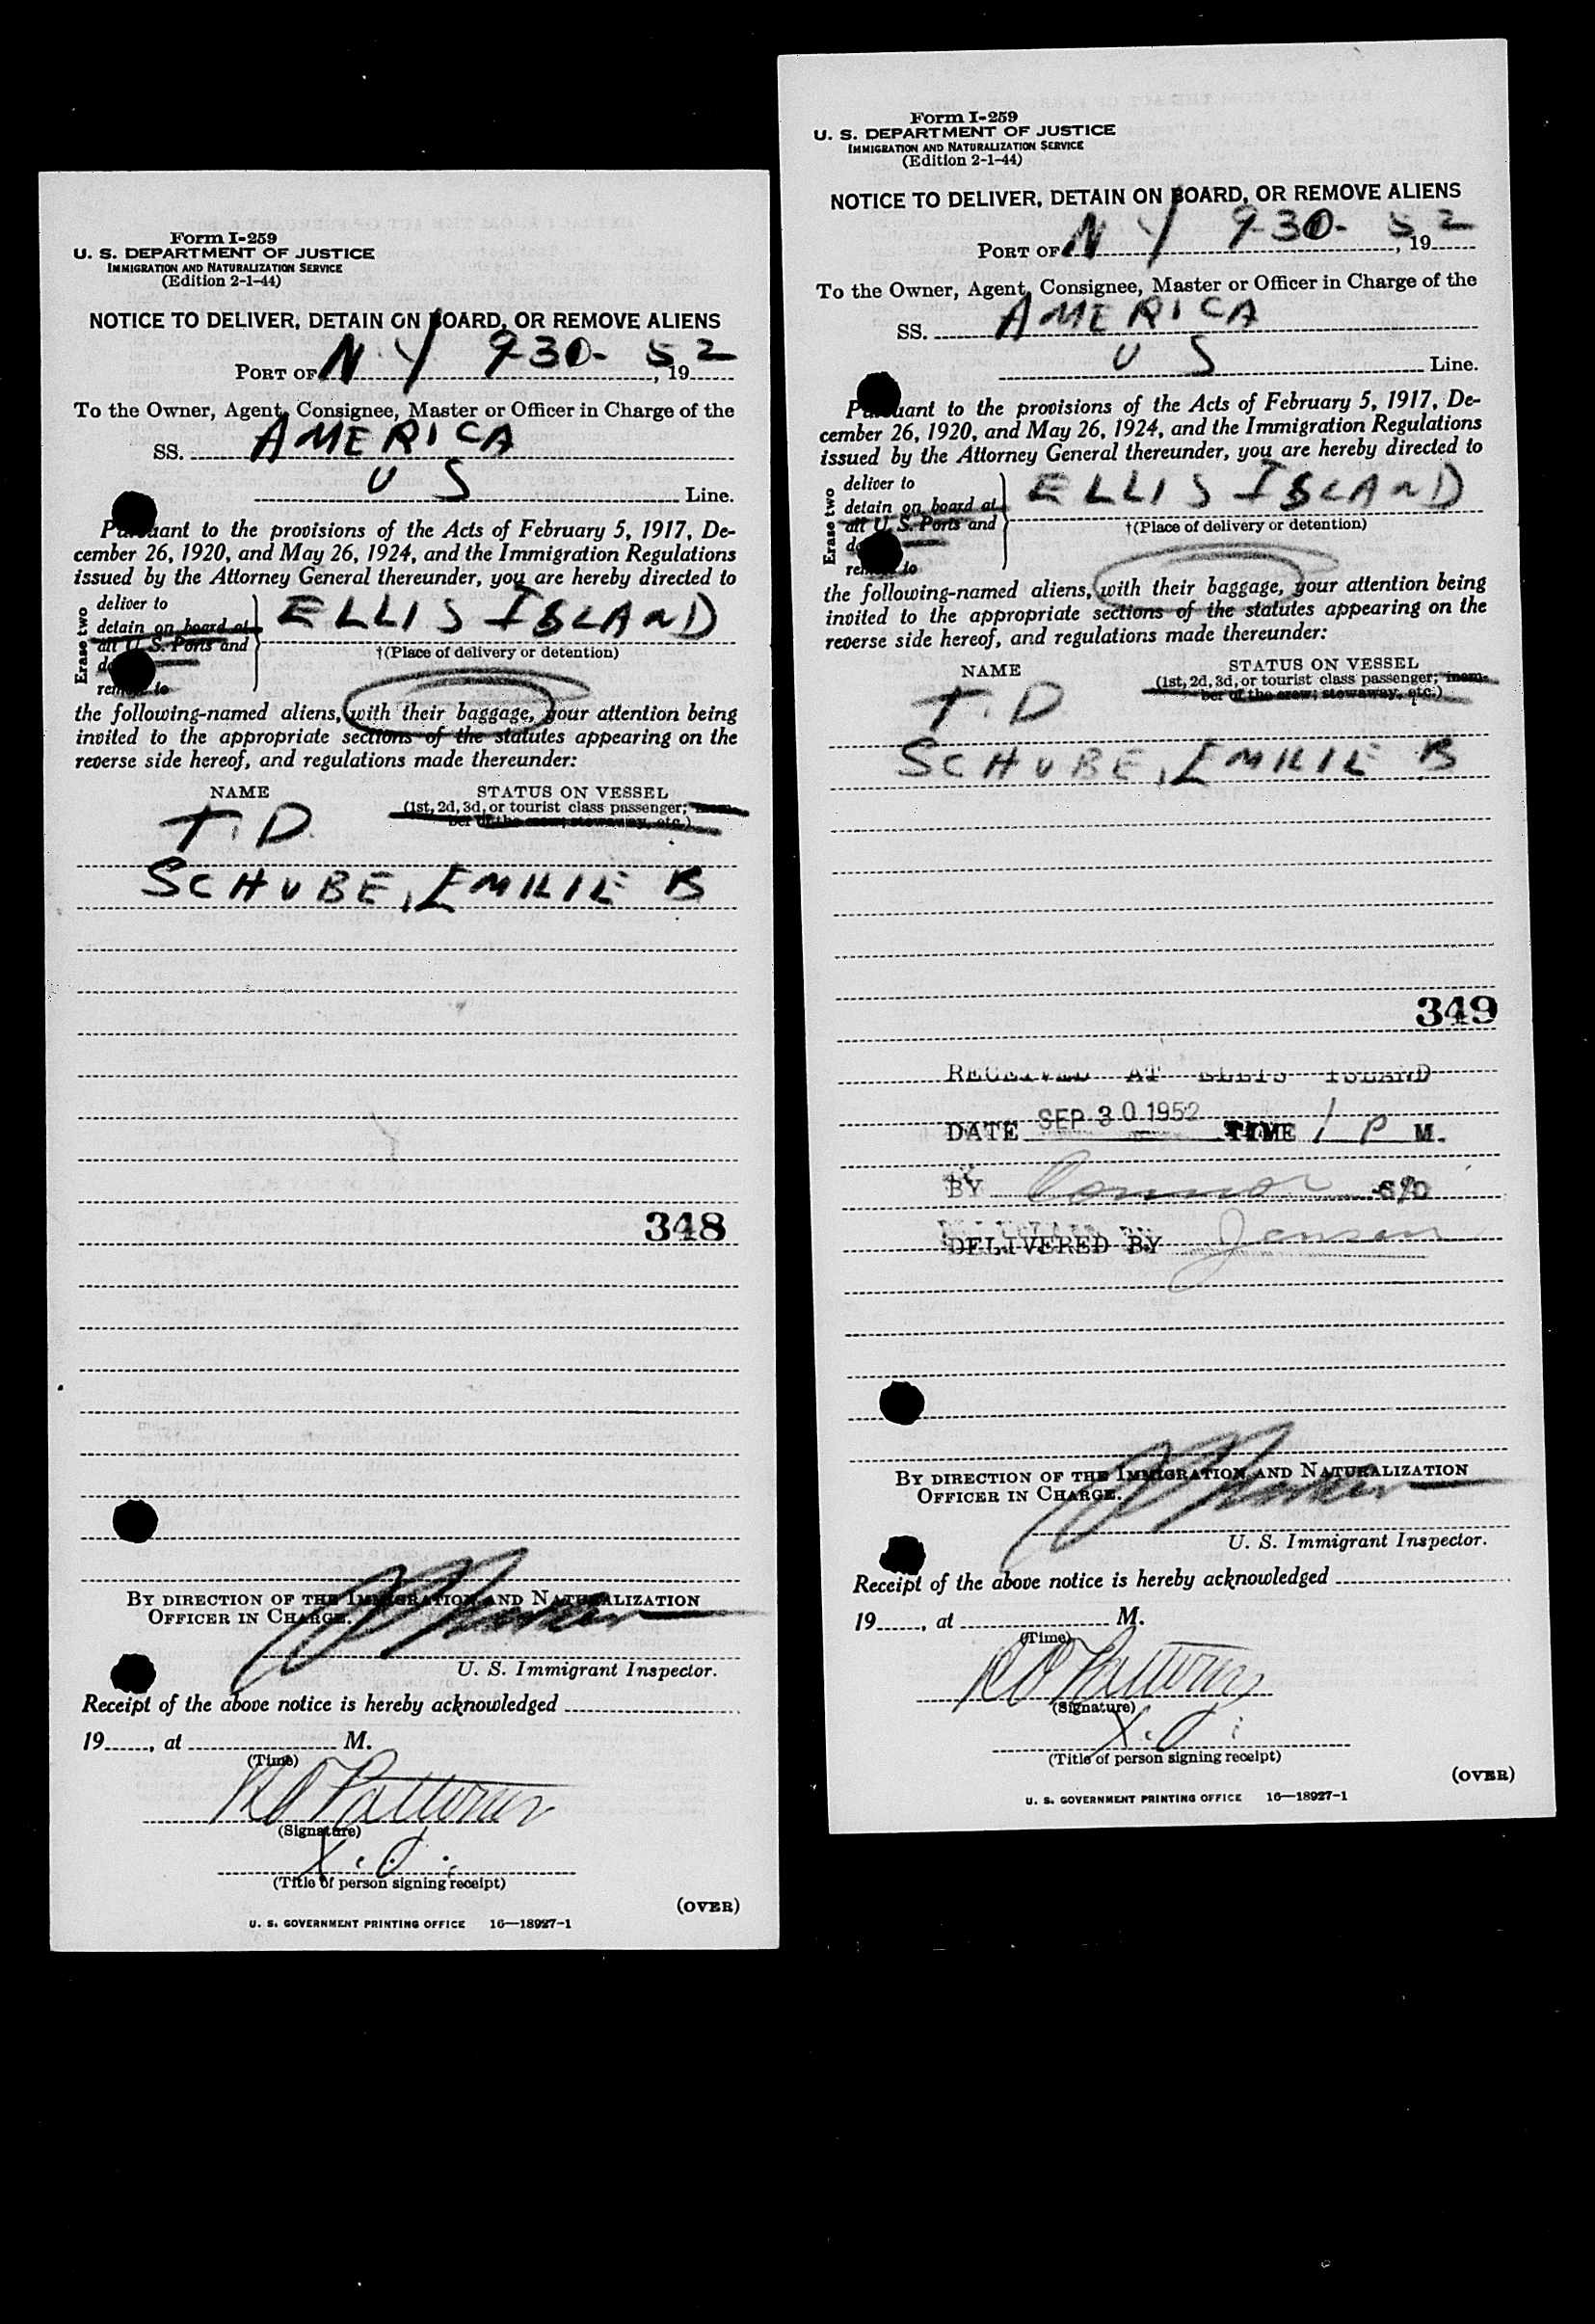 Form I-259
U. S. DEPARTMENT OF JUSTICE
IMMIGRATION AND NATURALIZATION SERVICE
(Edition 2-1-44)
NOTICE TO DELIVER, DETAIN ON BOARD, OR REMOVE ALIENS
PORT OF N Y 9-30- 52, 19
To the Owner, Agent, Consignee, Master or Officer in Charge of the
SS. AMERICA
U S Line.
Pursuant to the provisions of the Acts of February 5, 1917, De-
cember 26, 1920, and May 26, 1924, and the Immigration Regulations
issued by the Attorney General thereunder, you are hereby directed to
Erase two
deliver to
detain on board at
all U. S. Ports and
remove to
ELLIS ISLAND
†(Place of delivery or detention)
the following-named aliens, with their baggage, your attention being
invited to the appropriate sections of the statutes appearing on the
reverse side hereof, and regulations made thereunder:
NAME STATUS ON VESSEL
(1st, 2d, 3d, or tourist class passenger; mem-
ber of the crew; stowaway, etc.)
T. D.
SCHUBE, EMILIE B
348
BY DIRECTION OF THE IMMIGRATION AND NATURALIZATION
OFFICER IN CHARGE.
U. S. Immigrant Inspector.
Receipt of the above notice is hereby acknowledged
19, at M.
(Time)
(Signature)
(Title of person signing receipt)
(OVER)
U. S. GOVERNMENT PRINTING OFFICE 16—18927-1
Form I-259
U. S. DEPARTMENT OF JUSTICE
IMMIGRATION AND NATURALIZATION SERVICE
(Edition 2-1-44)
NOTICE TO DELIVER, DETAIN ON BOARD, OR REMOVE ALIENS
PORT OF N Y 9-30- 52, 19
To the Owner, Agent, Consignee, Master or Officer in Charge of the
SS. AMERICA
U S Line.
Pursuant to the provisions of the Acts of February 5, 1917, De-
cember 26, 1920, and May 26, 1924, and the Immigration Regulations
issued by the Attorney General thereunder, you are hereby directed to
Erase two
deliver to
detain on board at
all U. S. Ports and
remove to
ELLIS ISLAND
†(Place of delivery or detention)
the following-named aliens, with their baggage, your attention being
invited to the appropriate sections of the statutes appearing on the
reverse side hereof, and regulations made thereunder:
NAME STATUS ON VESSEL
(1st, 2d, 3d, or tourist class passenger; mem-
ber of the crew; stowaway, etc.)
T. D
SCHUBE, EMILIE B
349
RECEIVED AT ELLIS ISLAND
DATE SEP 30 1952 TIME 1 P M.
BY Connor S/O
DELIVERED BY Jensen
BY DIRECTION OF THE IMMIGRATION AND NATURALIZATION
OFFICER IN CHARGE.
U. S. Immigrant Inspector.
Receipt of the above notice is hereby acknowledged
19, at M.
(Time)
(Signature)
(Title of person signing receipt)
(OVER)
U. S. GOVERNMENT PRINTING OFFICE 16—18927-1